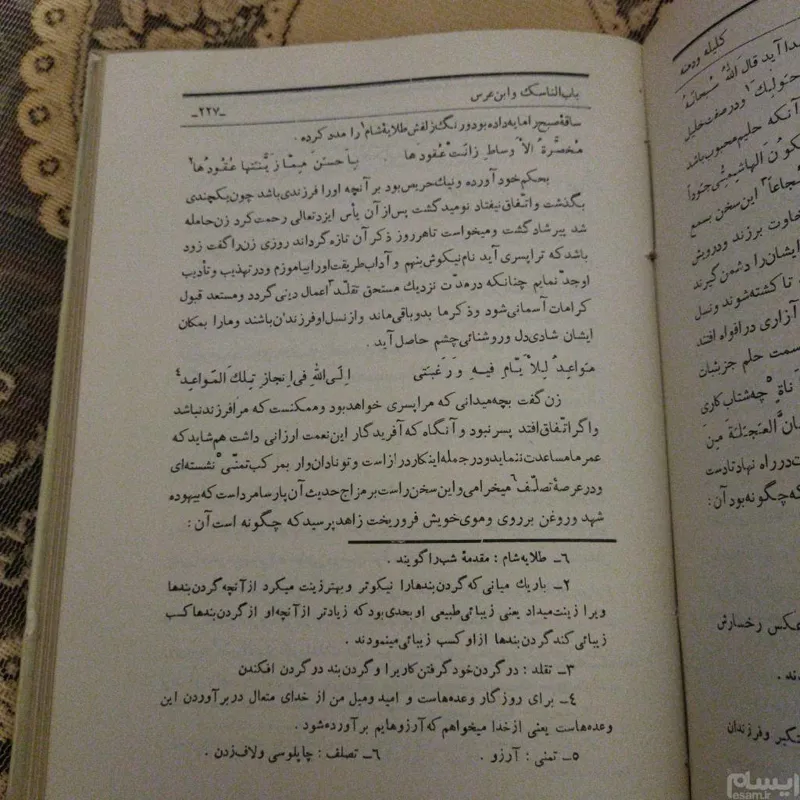 باب‌الناسک وابن‌عرس
-۲۲۷-
ساقهٔ صبح رامایه داده بود ورنگ زلفش طلایهٔ شام۱ را مدد کرده .
مُخَصَّرَةُ الْاَ وساطِ زانَت عُقودَها    بِاَحسَنَ مِمّا زَیَّنَتها عُقودُها۲
بحکم خود آورده ونیک حریص بود بر آنچه اورا فرزندی باشد چون یکچندی
بگذشت واتفاق نیفتاد نومید گشت پس از آن یأس ایزدتعالی رحمت کرد زن حامله
شد پیر شاد گشت ومیخواست تاهر روز ذکر آن تازه گرداند روزی زن را گفت زود
باشد که ترا پسری آید نام نیکوش بنهم و آداب طریقت اورا بیاموزم ودر تهذیب وتأدیب
اوجد نمایم چنانکه در مدّت نزدیک مستحق تقلد۳ اعمال دینی گردد ومستعد قبول
کرامات آسمانی شود وذکر ما بدو باقی ماند وازنسل اوفرزندن باشند ومارا بمکان
ایشان شادی دل وروشنائی چشم حاصل آید .
مَواعیدُ لِلاَ یّامِ فیهِ وَ رَغبَتی    اِلَی اللهِ فی اِنجازِ تِلكَ المَواعِدِ۴
زن گفت بچه میدانی که مراپسری خواهد بود وممکنست که مرا فرزند نباشد
واگر اتفاق افتد پسر نبود و آنگاه که آفریدگار این نعمت ارزانی داشت هم شاید که
عمر ما مساعدت ننماید ودر جمله اینکار دراز است و تو نادان وار بر مرکب تمنّی۵ نشسته‌ای
ودر عرصهٔ تصلف۶ میخرامی واین سخن راست بر مزاج حدیث آن پارسا مرد است که بیهوده
شهد وروغن بر روی وموی خویش فرو ریخت زاهد پرسید که چگونه است آن :
۶ــ طلایه‌شام : مقدمهٔ شب را گویند .
۲ــ باریک میانی که گردن بندهارا نیکوتر و بهتر زینت میکرد از آنچه گردن بندها
ویرا زینت میداد یعنی زیبائی طبیعی او بحدی بود که زیادتر از آنچه او از گردن بندها کسب
زیبائی کند گردن بندها از او کسب زیبائی مینمودند .
۳ــ تقلد : در گردن خود گرفتن کاریرا و گردن بند در گردن افکندن
۴ــ برای روز گار وعده‌هاست و امید ومیل من از خدای متعال در بر آوردن این
وعده‌هاست یعنی از خدا میخواهم که آرزوهایم بر آورده شود .
۵ــ تمنی : آرزو .    ۶ــ تصلف : چاپلوسی ولاف زدن .
کلیله ودمنه
دا آید قال اللهُ سُبحانَهُ
حَولِكَ۱ ودر صفت خلیل
آنکه حلیم محبوب باشد
این سخن بسمع
خاوت برزند ودرویش
ایشان را دشمن گیرند
تا کشته شوند ونسل
آزاری در افواه افتد
سمت حلم جز بشان
چه شتاب کاری
انَّ العَجَلَةَ مِنَ
ت در راه نهاد تادست
که چگونه بود آن :
عکس رخسارش
ند .
وفرزندان
ایسام
esam.ir